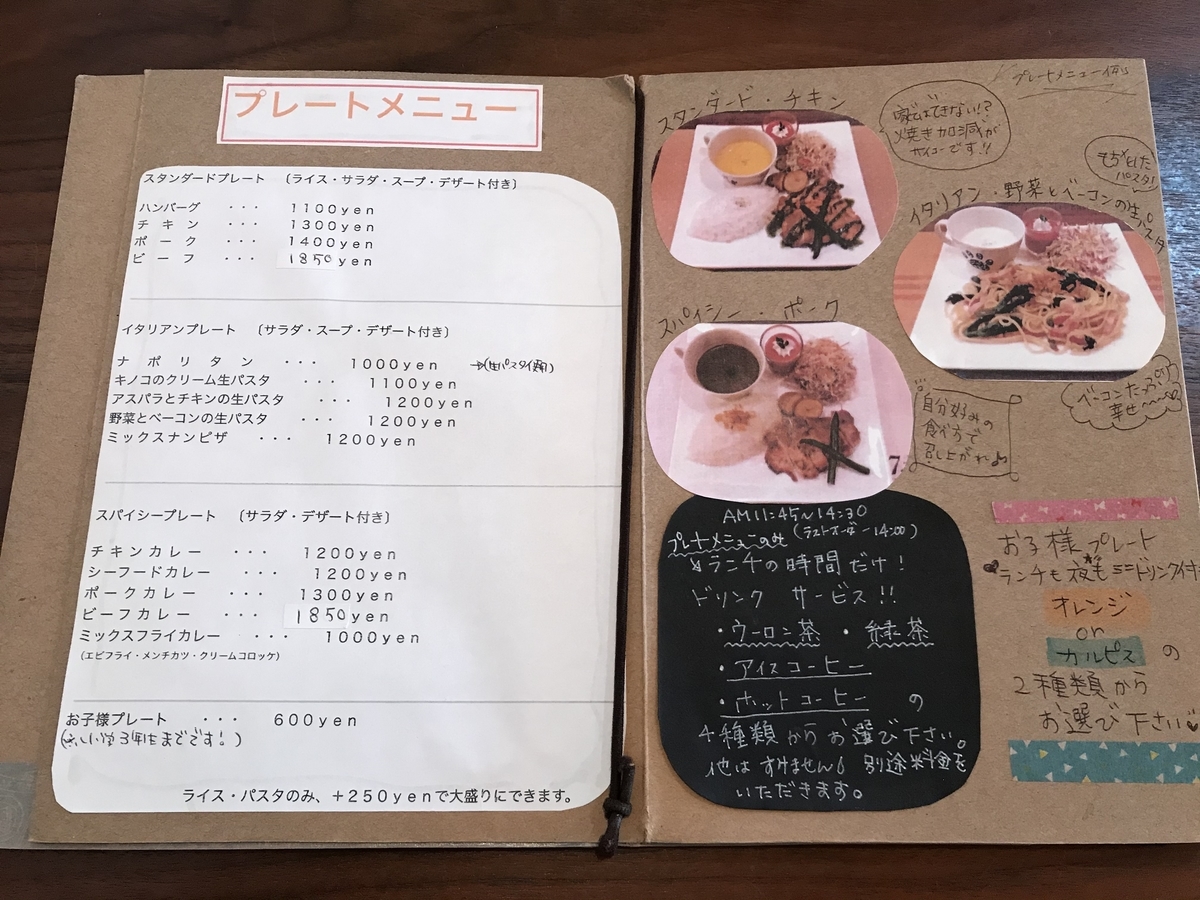 プレートメニュー
スタンダードプレート 〔ライス・サラダ・スープ・デザート付き〕
ハンバーグ ・・・ 1100yen
チキン ・・・ 1300yen
ポーク ・・・ 1400yen
ビーフ ・・・ 1850yen
イタリアンプレート 〔サラダ・スープ・デザート付き〕
ナポリタン ・・・ 1000yen →(生パスタ使用)
キノコのクリーム生パスタ ・・・ 1100yen
アスパラとチキンの生パスタ ・・・ 1200yen
野菜とベーコンの生パスタ ・・・ 1200yen
ミックスナンピザ ・・・ 1200yen
スパイシープレート 〔サラダ・デザート付き〕
チキンカレー ・・・ 1200yen
シーフードカレー ・・・ 1200yen
ポークカレー ・・・ 1300yen
ビーフカレー ・・・ 1850yen
ミックスフライカレー ・・・ 1000yen
(エビフライ・メンチカツ・クリームコロッケ)
お子様プレート ・・・ 600yen
3年生までです!)
ライス・パスタのみ、+250yenで大盛りにできます。
プレートメニュー例
スタンダード・チキン
家ではできない!?
焼き加減が
サイコーです!!
もちっとした
パスタ!
イタリアン・野菜とベーコンの生パスタ
スパイシー・ポーク
ベーコンたっぷり
幸せ〜
自分好みの
食べ方で
召し上がれ♪
AM11:45〜14:30
プレートメニューのみ (ラストオーダー14:00)
ランチの時間だけ!
ドリンク サービス!!
・ウーロン茶 ・緑茶
・アイスコーヒー
・ホットコーヒー の
4種類からお選び下さい。
他はすみません 別途料金を
いただきます。
お子様プレート
ランチも夜もミニドリンク付き
オレンジ
or
カルピス の
2種類から
お選び下さい♥